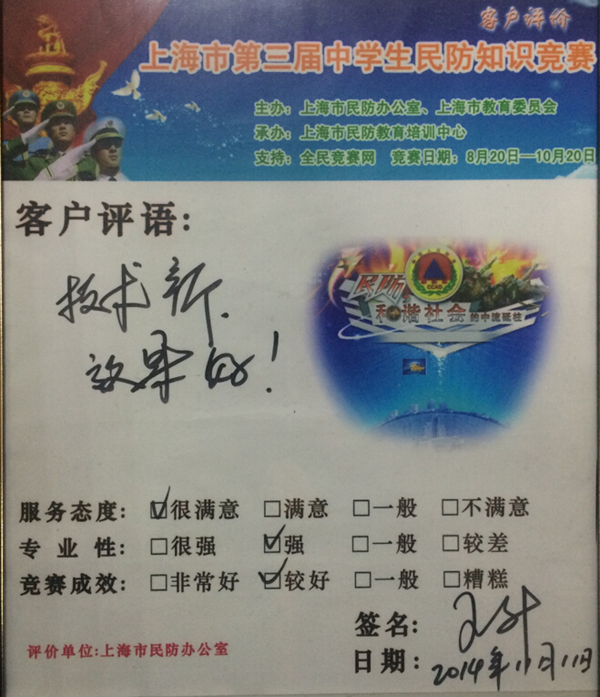 客户评价
上海市第三届中学生民防知识竞赛
主办：上海市民防办公室、上海市教育委员会
承办：上海市民防教育培训中心
支持：全民竞赛网 竞赛日期：8月20日—10月20日
客户评语：
技术新、
效果好！
民防
和谐社会的中流砥柱
服务态度：☑很满意 □满意 □一般 □不满意
专业性：□很强 ☑强 □一般 □较差
竞赛成效：□非常好 ☑较好 □一般 □糟糕
签名：
评价单位:上海市民防办公室
日期：2014年11月11日